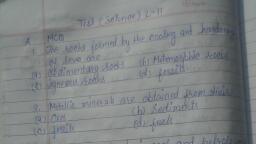 Test (Science) L-11
MCQ
1. The rocks formed by the cooling and hardening
of lava are
(a) Sedimentary rocks (b) Metamorphic rocks
(c) Igneous rocks (d) fossils
2. Metallic minerals are obtained from their
(a) Ores (b) Sediments
(c) fossils (d) fuels